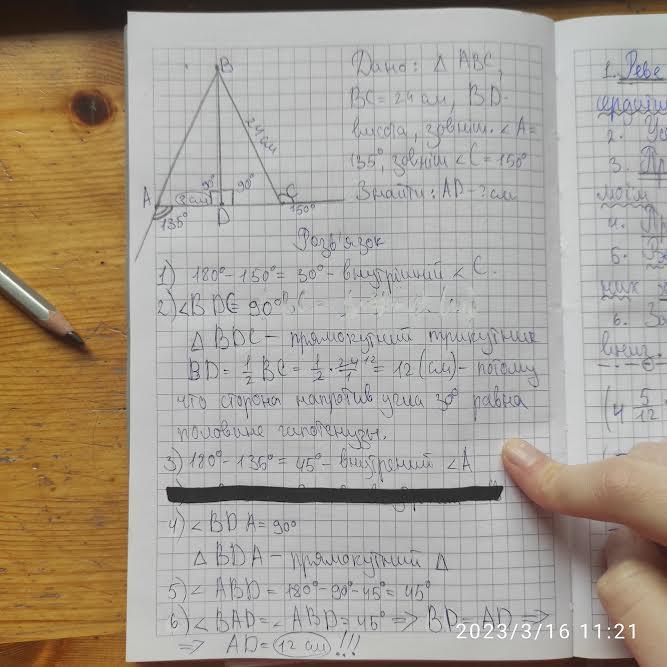 B
24 см
A
? см
90°
90°
D
C
135°
150°
Дано: △ ABC,
BC = 24 см, BD -
висота, зовніш. <A =
135°, зовніш <C = 150°
Знайти: AD - ? см
Розв'язок
1) 180° - 150° = 30° - внутрішний < C.
2) <BDC = 90°
△ BDC - прямокутний трикутник
BD = 1/2 BC = 1/2 · 24/1 12 = 12 (см) - потому
что сторона напротив угла 30° равна
половине гипотенузы.
3) 180° - 135° = 45° - внутрений <A
4) <BDA = 90°
△ BDA - прямокутний △
5) < ABD = 180° - 90° - 45° = 45°
6) <BAD = <ABD = 45° => BD = AD =>
=> AD = 12 см !!
1. Реве
2.
3. Пр
4. Пр
5.
6. За
(4 5/12
2023/3/16 11:21